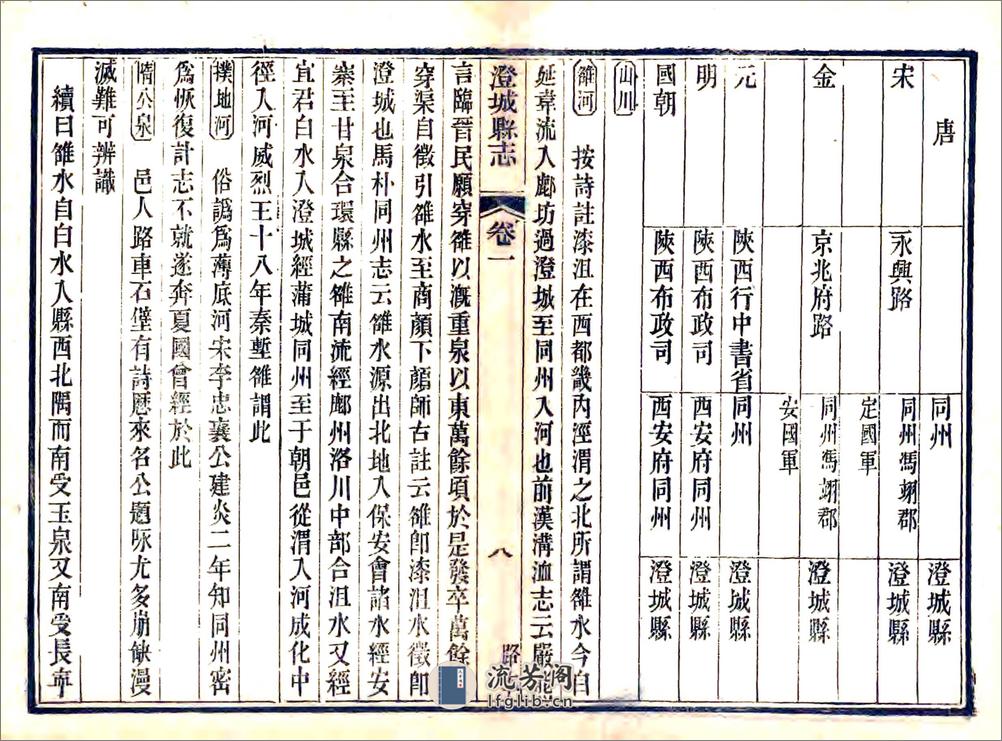 唐　同州　澄城縣
宋　永興路　同州馮翊郡　澄城縣
定國軍
金　京兆府路　同州馮翊郡　澄城縣
安國軍
元　陝西行中書省　同州　澄城縣
明　陝西布政司　西安府同州　澄城縣
國朝　陝西布政司　西安府同州　澄城縣
山川
雒河　按詩註漆沮在西都畿內涇渭之北所謂雒水今自
延韋流入鄜坊過澄城至同州入河也前漢溝洫志云嚴熊
澄城縣志　卷一　八　路
言臨晉民願穿雒以漑重泉以東萬餘頃於是發卒萬餘
穿渠自徵引雒水至商顏下顏師古註云雒卽漆沮水徵卽
澄城也馬朴同州志云雒水源出北地入保安會諸水經安
寨至甘泉合環縣之雒南流經鄜州洛川中部合沮水又經
宜君白水入澄城經蒲城同州至于朝邑從渭入河成化中
徑入河威烈王十八年秦塹雒謂此
濮地河　俗譌爲薄底河宋李忠襄公建炎二年知同州密
爲恢復計志不就遂奔夏國會經於此
隋公泉　邑人路車石僅有詩曆來名公題咏尤多崩缺漫
滅難可辨識
續曰雒水自白水入縣西北隅而南受玉泉又南受長寧
流芳閣
lfglib.cn